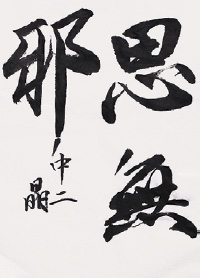 思無
邪
中二
晶